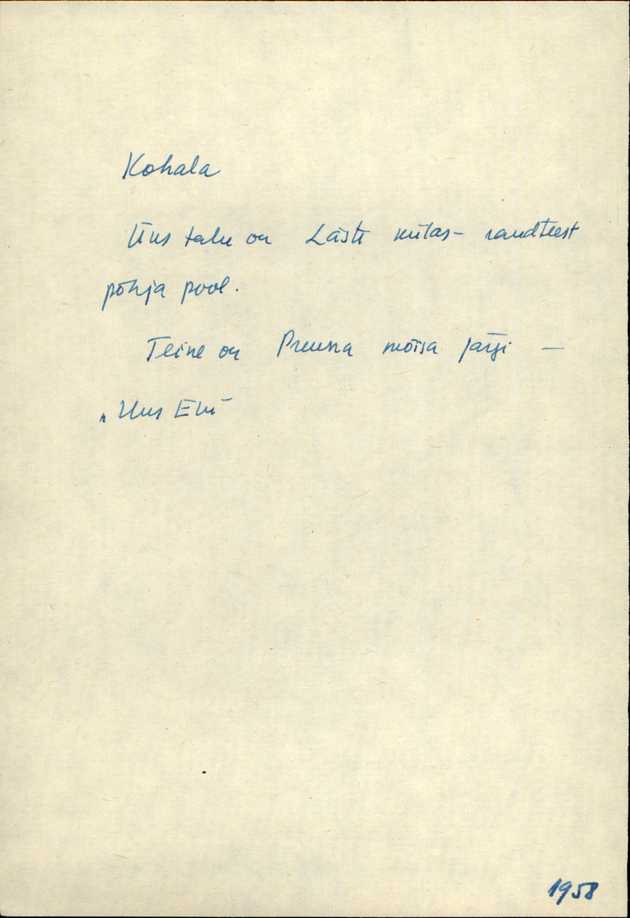 Kohala
Üks talu on külas – raudteest
põhja pool.
Teine on Pruuna mõisa järgi —
„Uus Elu”
1958